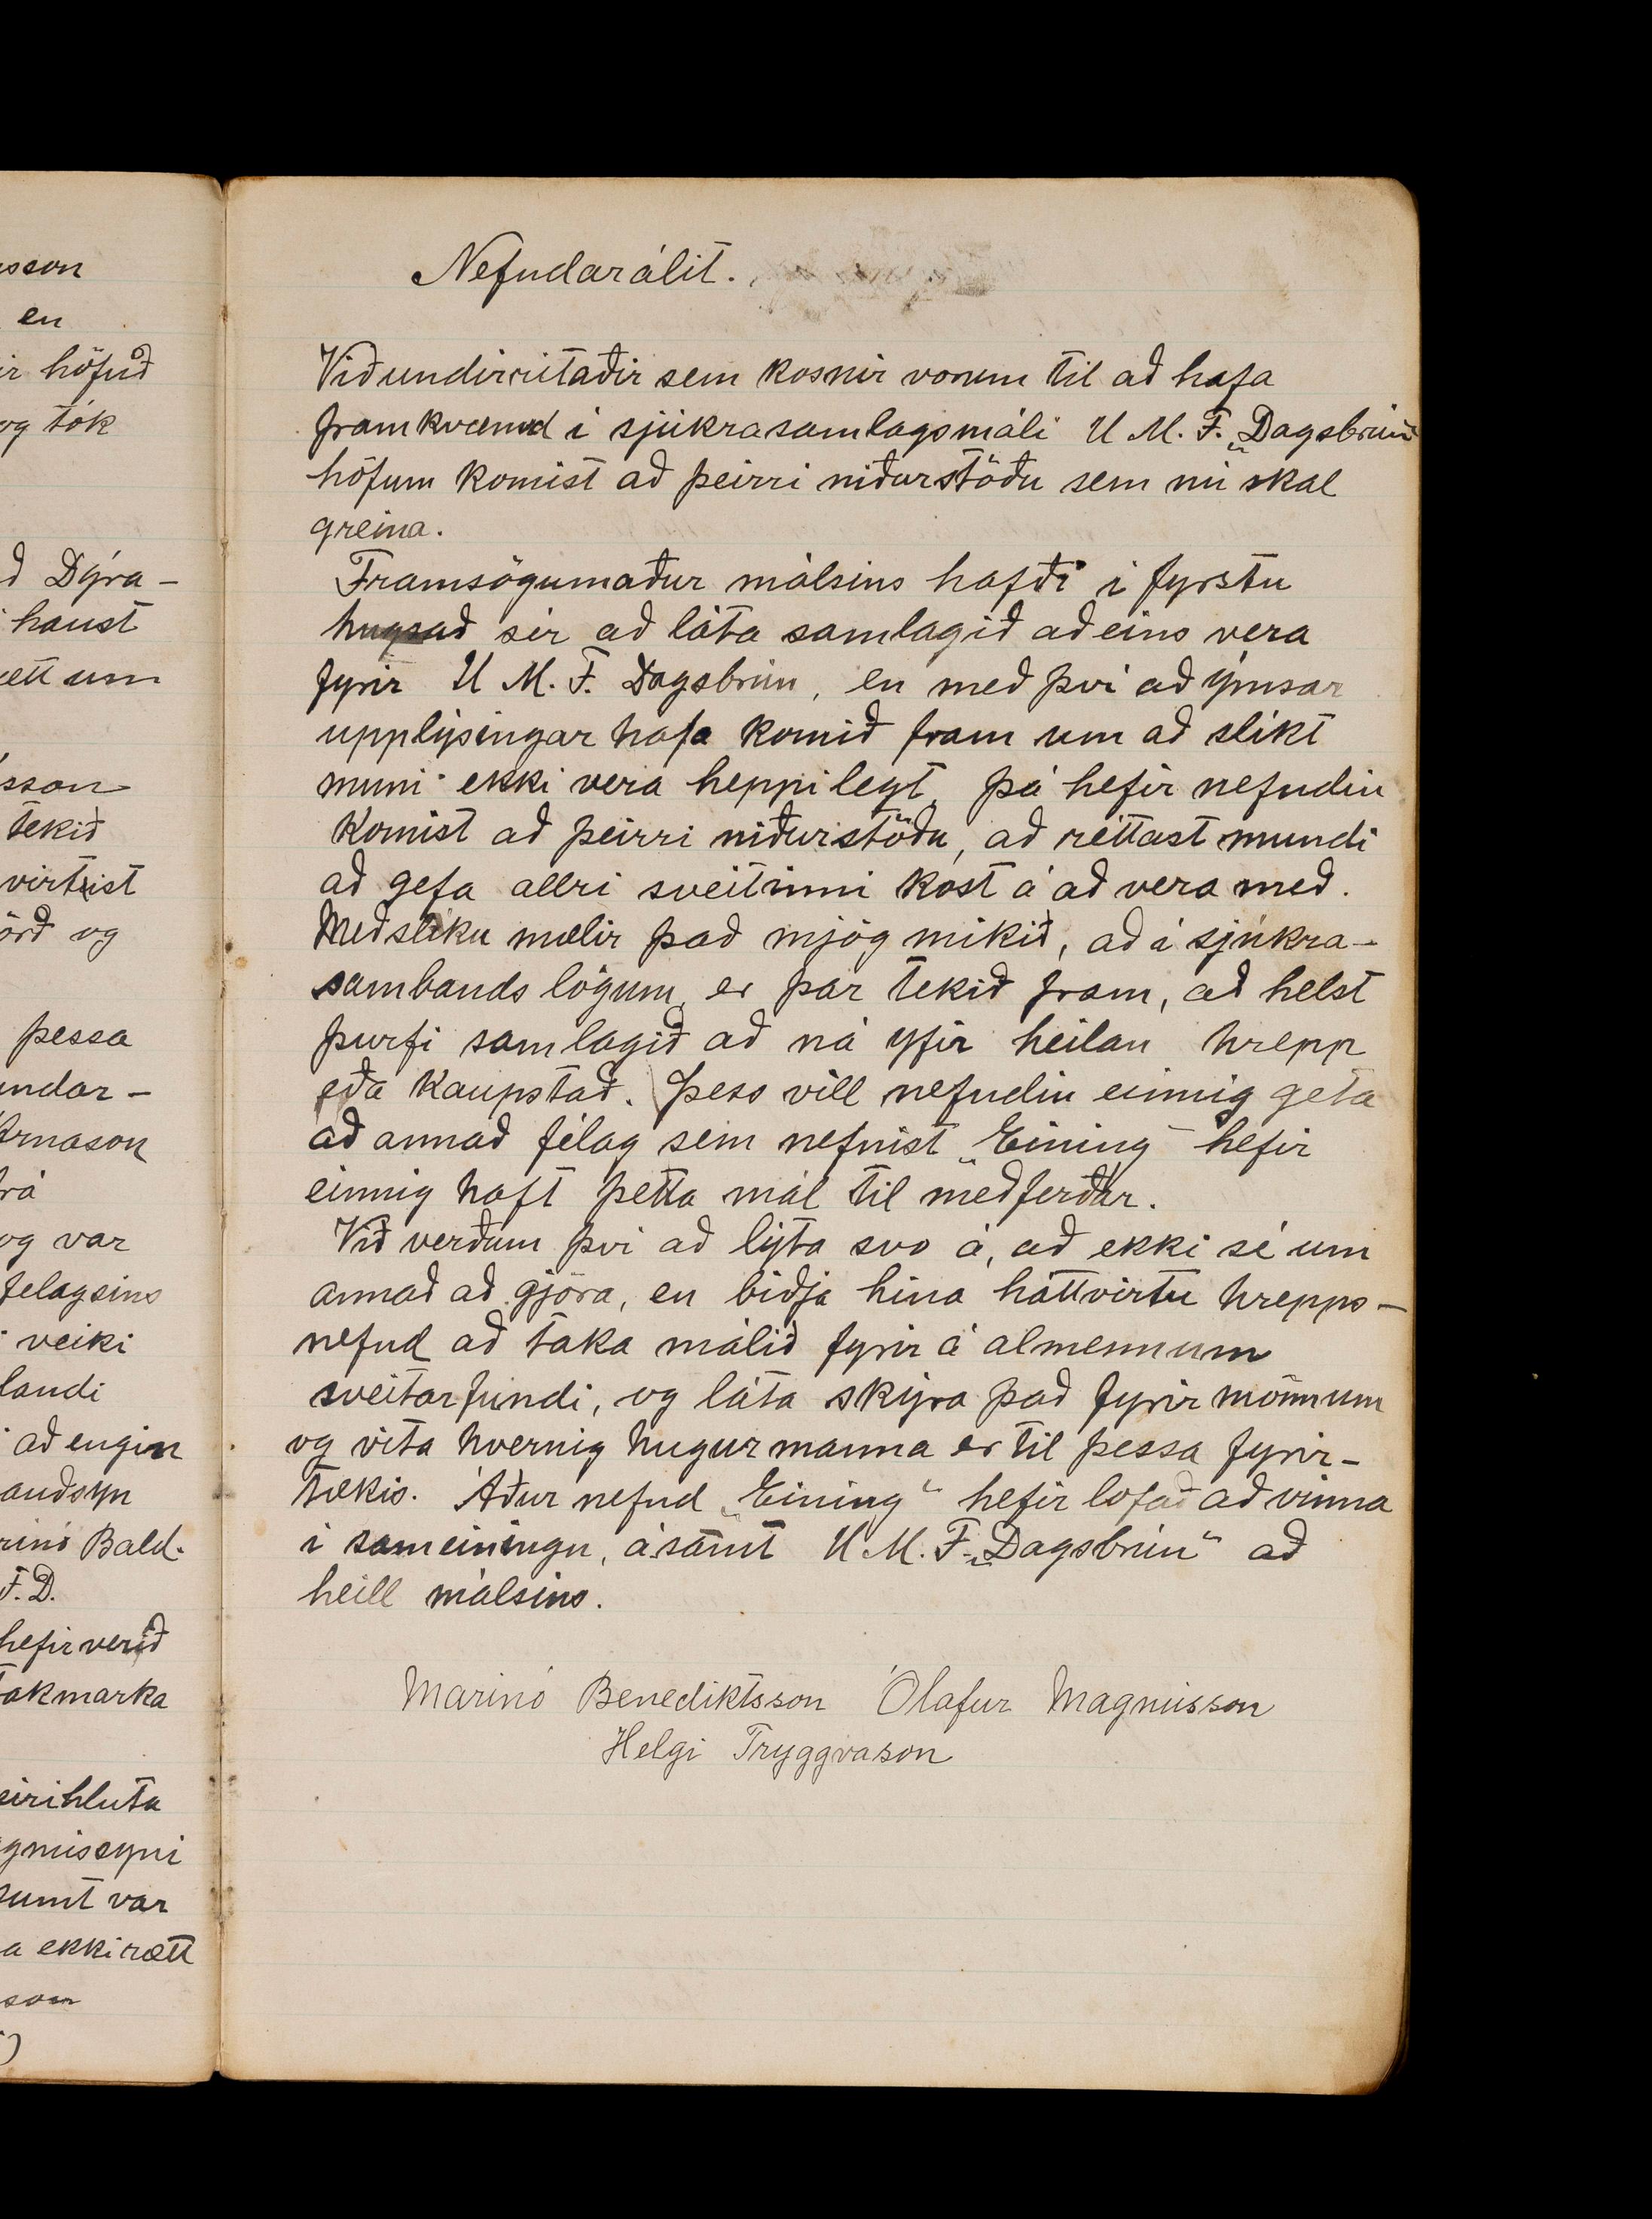 sson
en
ir höfuð
og tók
ð Dýra-
haust
ett um
sson
tekið
virtist
örð og
þessa
undar-
Árnason
frá
og var
felagsins
veiki
landi
að engin
auðsyn
rinó Bald-
F. D.
hefir verið
takmarka
eirihluta
gnússyni
sumt var
a ekki rætt
son
Nefndarálit.
Við undirritaðir sem kosnir vorum til að hafa
framkvæmd í sjúkrasamlagsmáli U M. F. „Dagsbrún"
höfum komist að þeirri niðurstöðu sem nú skal
greina.
Framsögumaður málsins hafði í fyrstu
hugsað sér að láta samlagið aðeins vera
fyrir U M. F. Dagsbrún, en með því að ýmsar
upplýsingar hafa komið fram um að slíkt
muni ekki vera heppilegt, þá hefir nefndin
komist að þeirri niðurstöðu, að réttast mundi
að gefa allri sveitinni kost á að vera með.
Með slíku mælir það mjög mikið, að í sjúkra-
sambands lögum, er þar tekið fram, að helst
þurfi samlagið að ná yfir heilan hrepp
eða kaupstað. Þess vill nefndin einnig geta
að annað félag sem nefnist „Eining" hefir
einnig haft þetta mál til meðferðar.
Við verðum því að lýta svo á, að ekki sé um
annað að gjöra, en biðja hina háttvirtu hrepps-
nefnd að taka málið fyrir á almennum
sveitarfundi, og láta skýra það fyrir mönnum
og vita hvernig hugur manna er til þessa fyrir-
tækis. Áður nefnd „Eining" hefir lofað að vinna
í sameiningu, ásamt U M. F. „Dagsbrún" að
heill málsins.
Marinó Benediktsson Ólafur Magnússon
Helgi Tryggvason